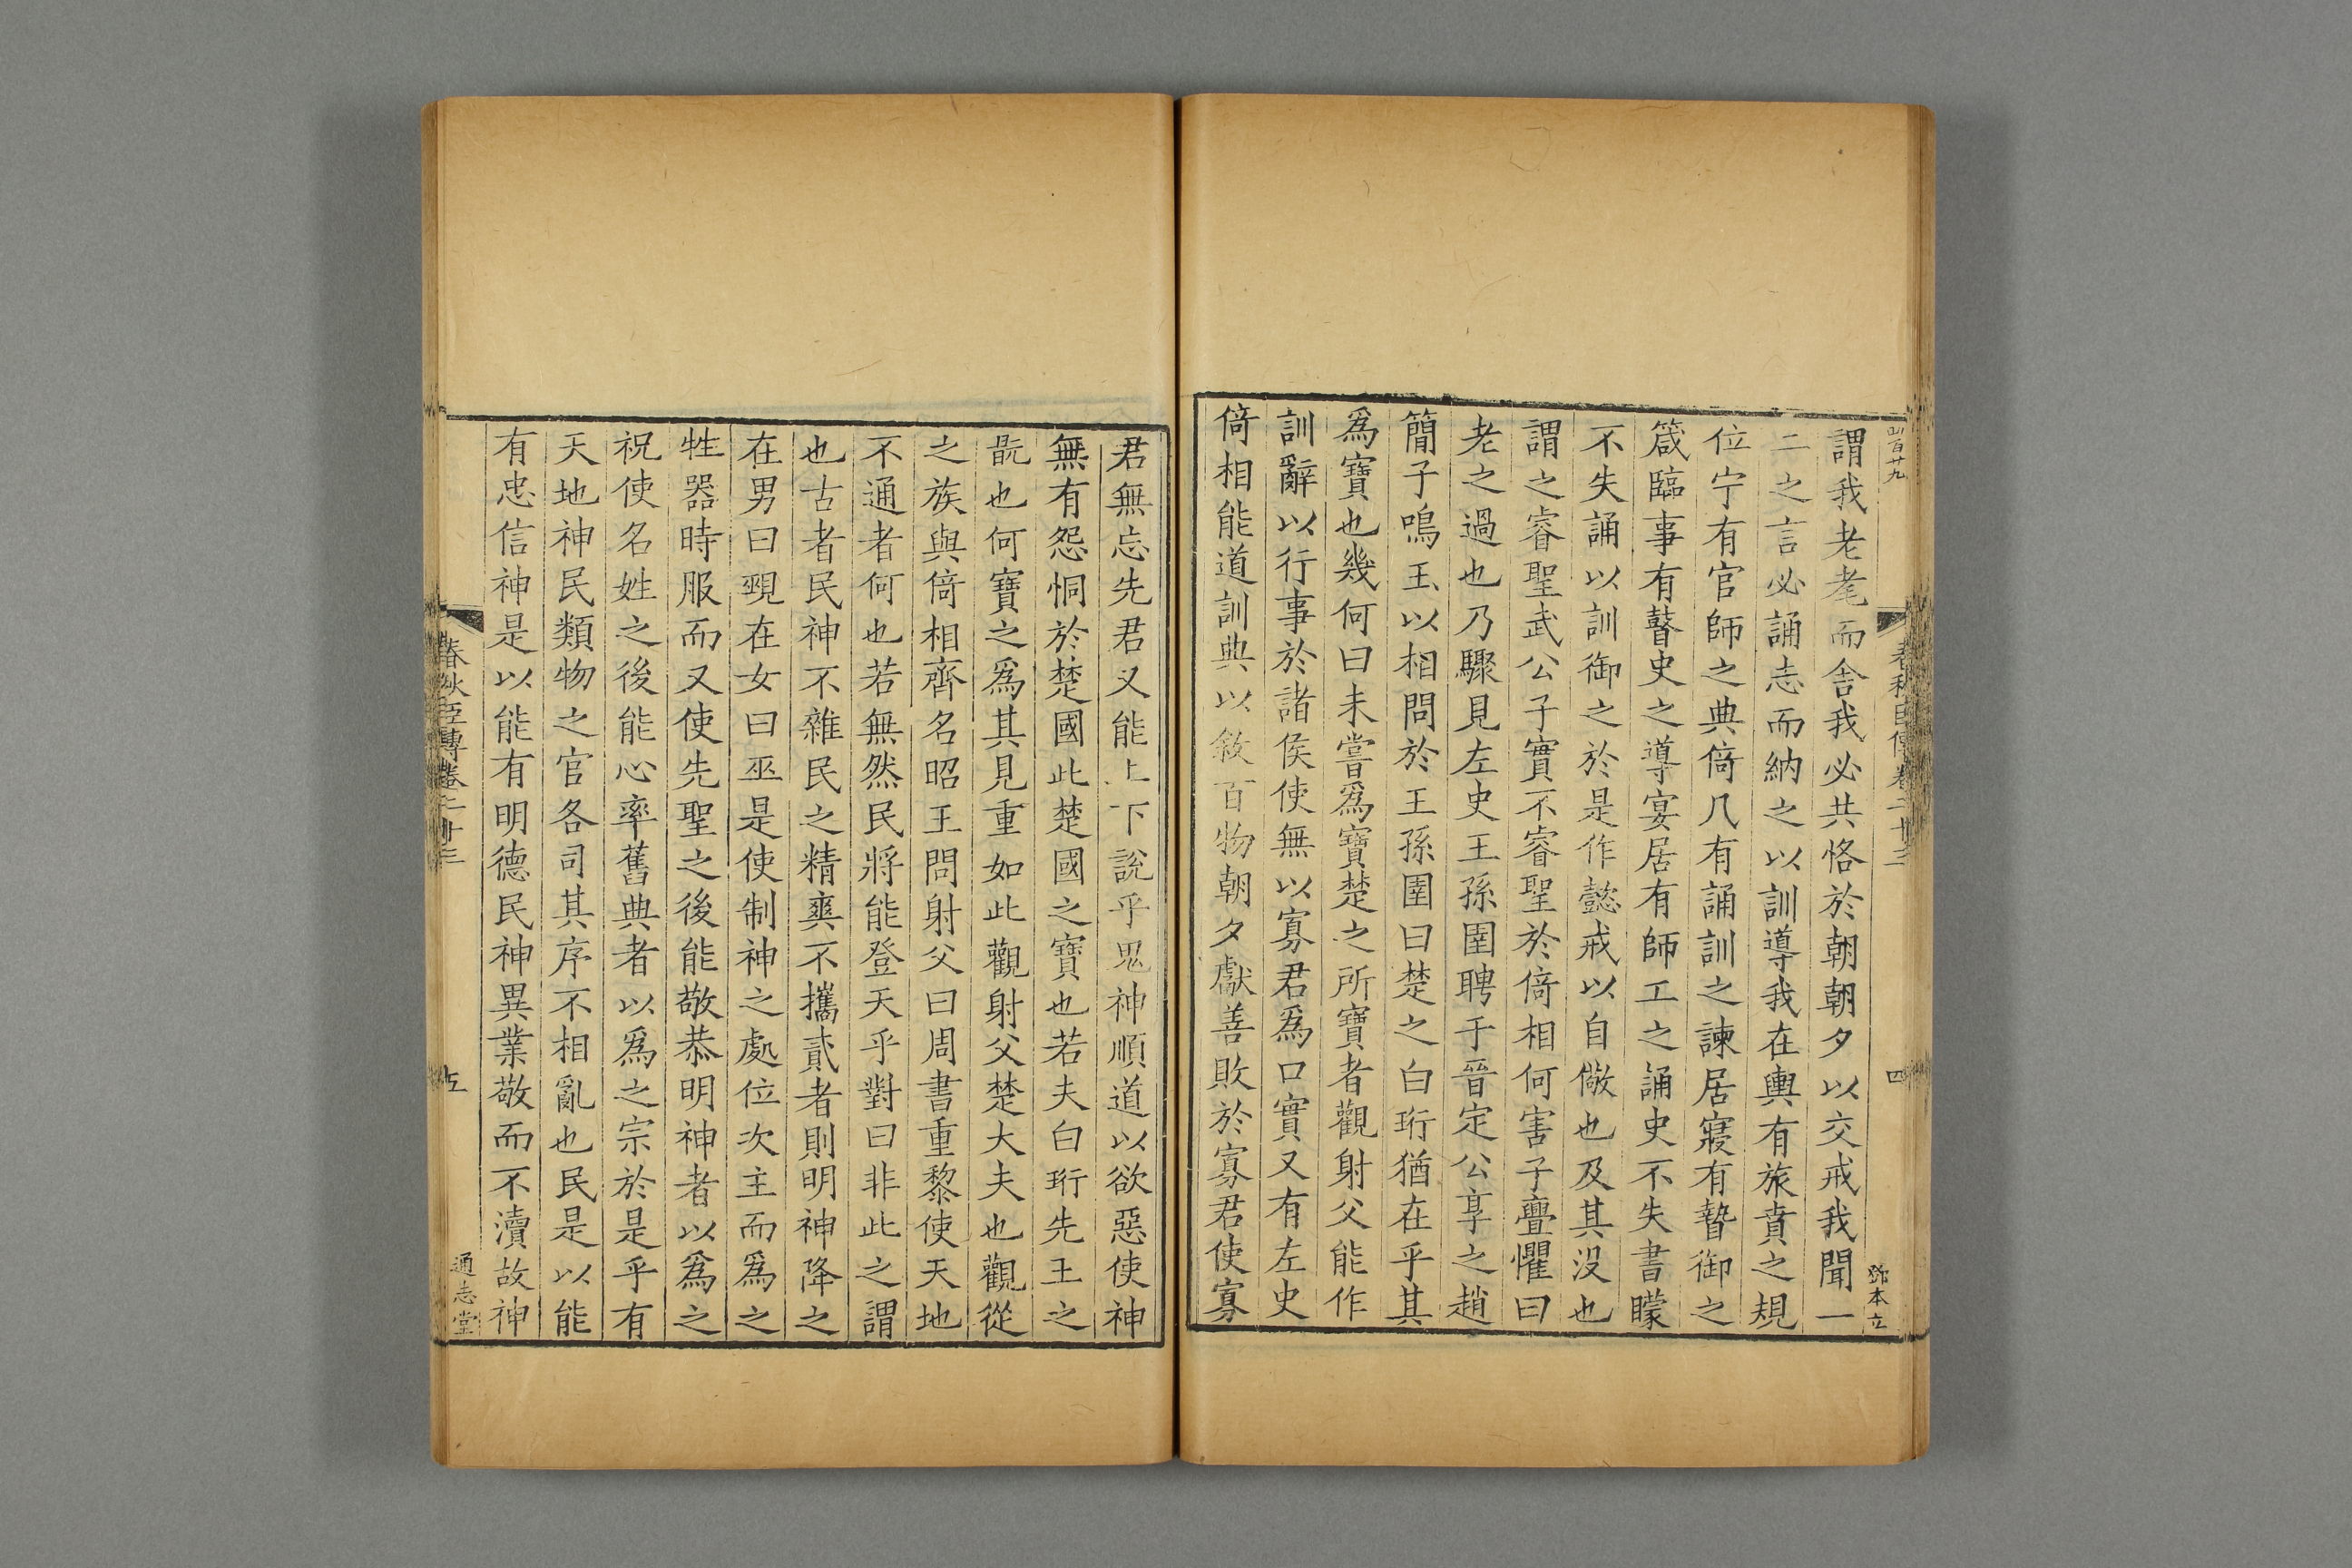 謂我老耄而舍我必共恪於朝朝夕以交戒我聞一
二之言必誦志而納之以訓導我在輿有旅賁之規
位宁有官師之典倚几有誦訓之諫居寢有暬御之
箴臨事有瞽史之導宴居有師工之誦史不失書矇
不失誦以訓御之於是作懿戒以自儆也及其没也
謂之睿聖武公子實不睿聖於倚相何害子亹懼曰
老之過也乃驟見左史王孫圉聘于晉定公享之趙
簡子鳴玉以相問於王孫圉曰楚之白珩猶在乎其
爲寶也幾何曰未嘗爲寶楚之所寶者觀射父能作
訓辭以行事於諸侯使無以寡君爲口實又有左史
倚相能道訓典以敘百物朝夕獻善敗於寡君使寡
君無忘先君又能上下說乎鬼神順道以欲惡使神
無有怨恫於楚國此楚國之寶也若夫白珩先王之
翫也何寶之爲其見重如此觀射父楚大夫也觀從
之族與倚相齊名昭王問射父曰周書重黎使天地
不通者何也若無然民將能登天乎對曰非此之謂
也古者民神不雜民之精爽不攜貳者則明神降之
在男曰覡在女曰巫是使制神之處位次主而爲之
牲器時服而又使先聖之後能敬恭明神者以爲之
祝使名姓之後能心率舊典者以爲之宗於是乎有
天地神民類物之官各司其序不相亂也民是以能
有忠信神是以能有明德民神異業敬而不瀆故神
春秋臣傳卷二十三
五
通志堂
四
鄧本立